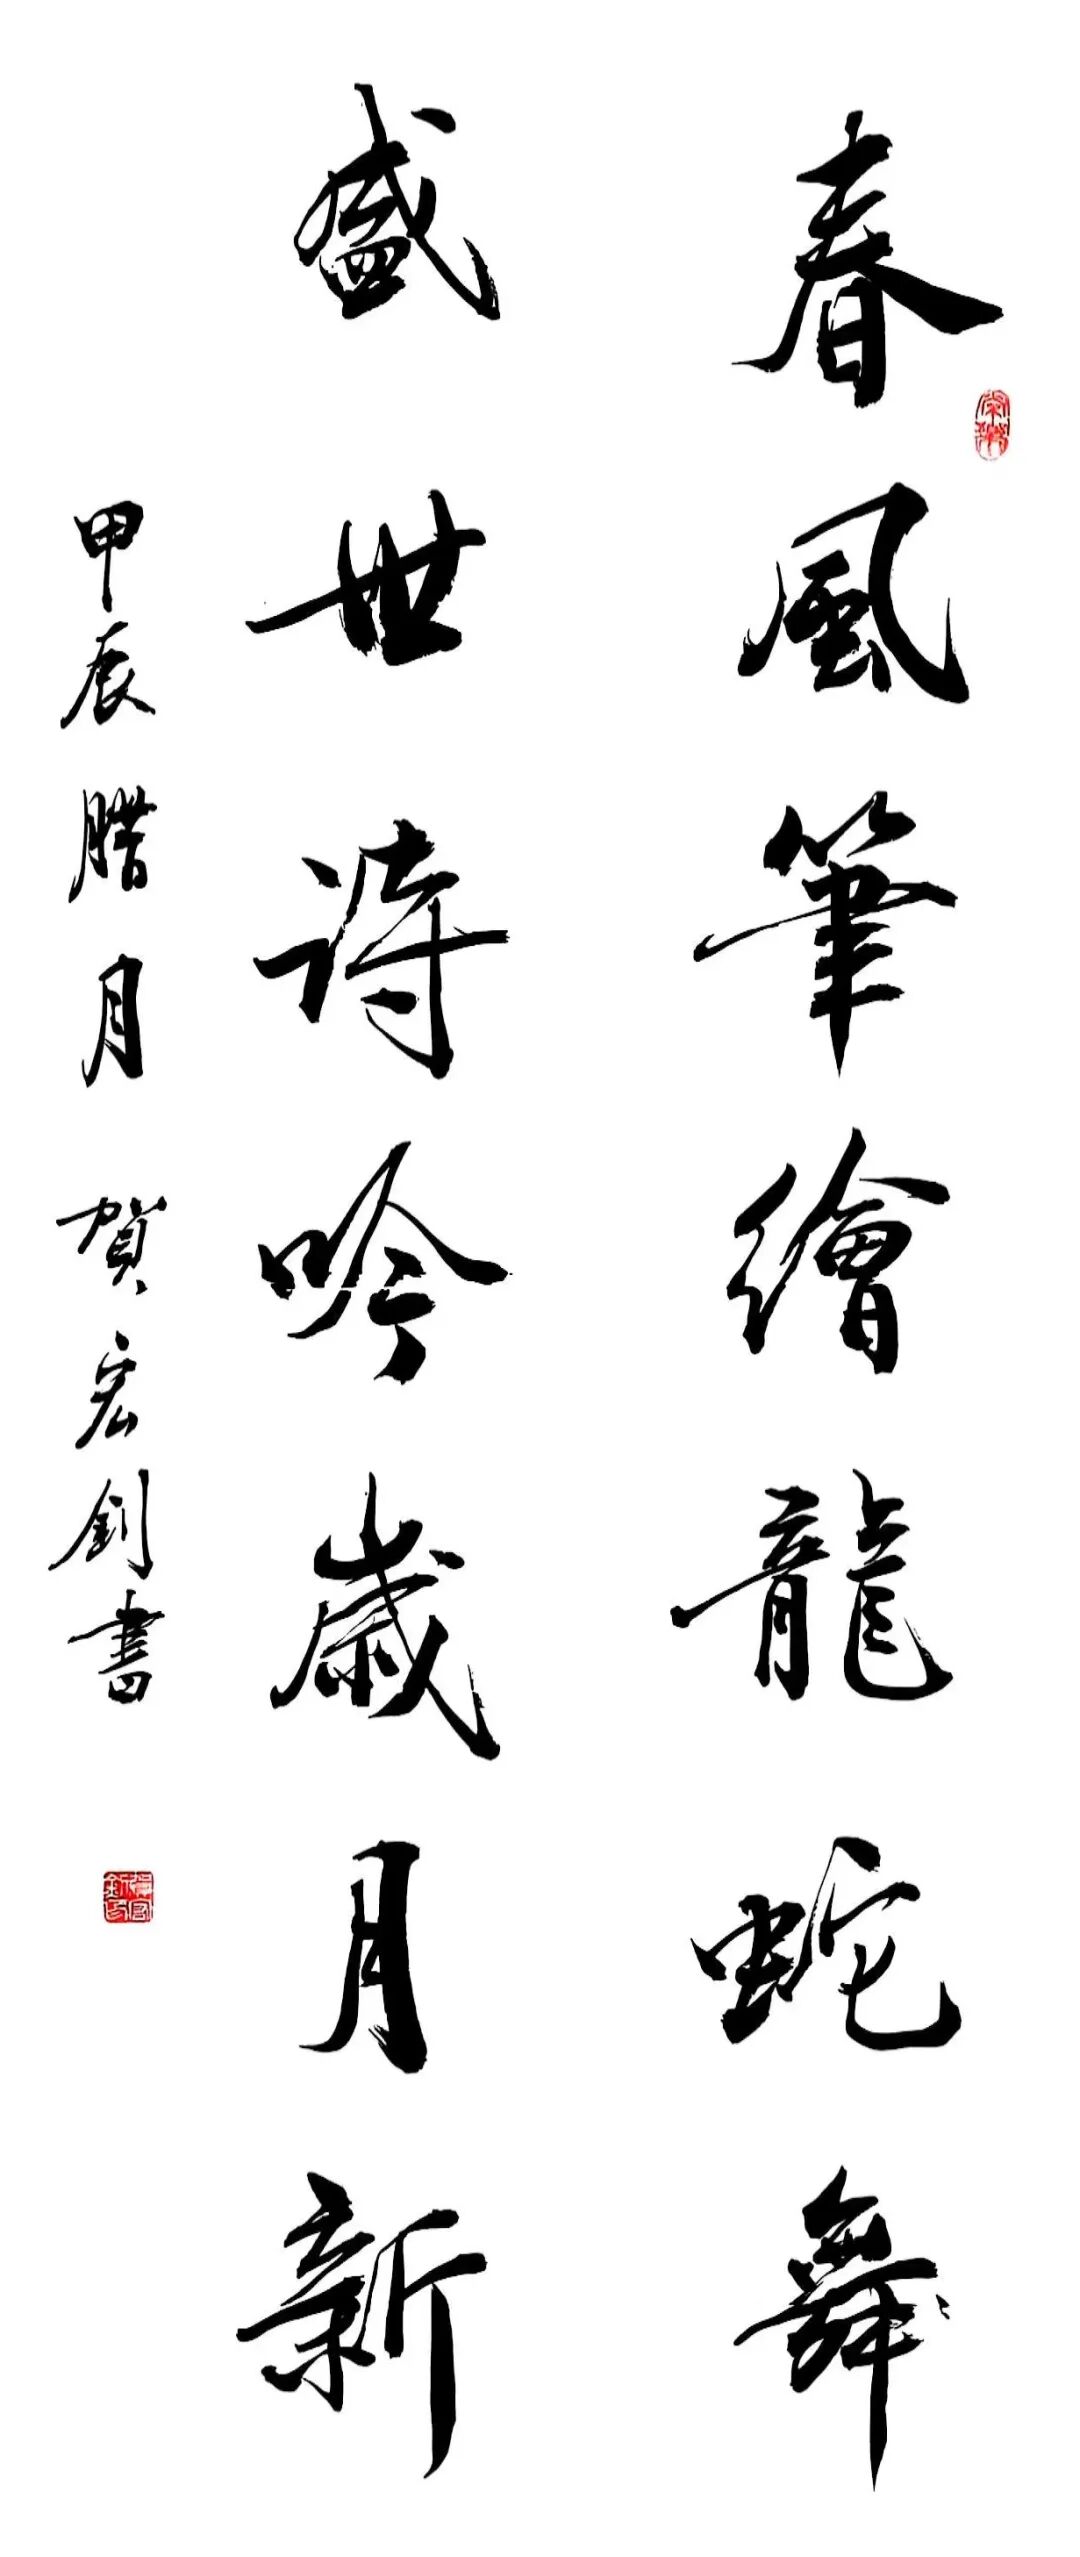 春風筆繪龍蛇舞
盛世詩吟歲月新
甲辰腊月 賀宏釗書